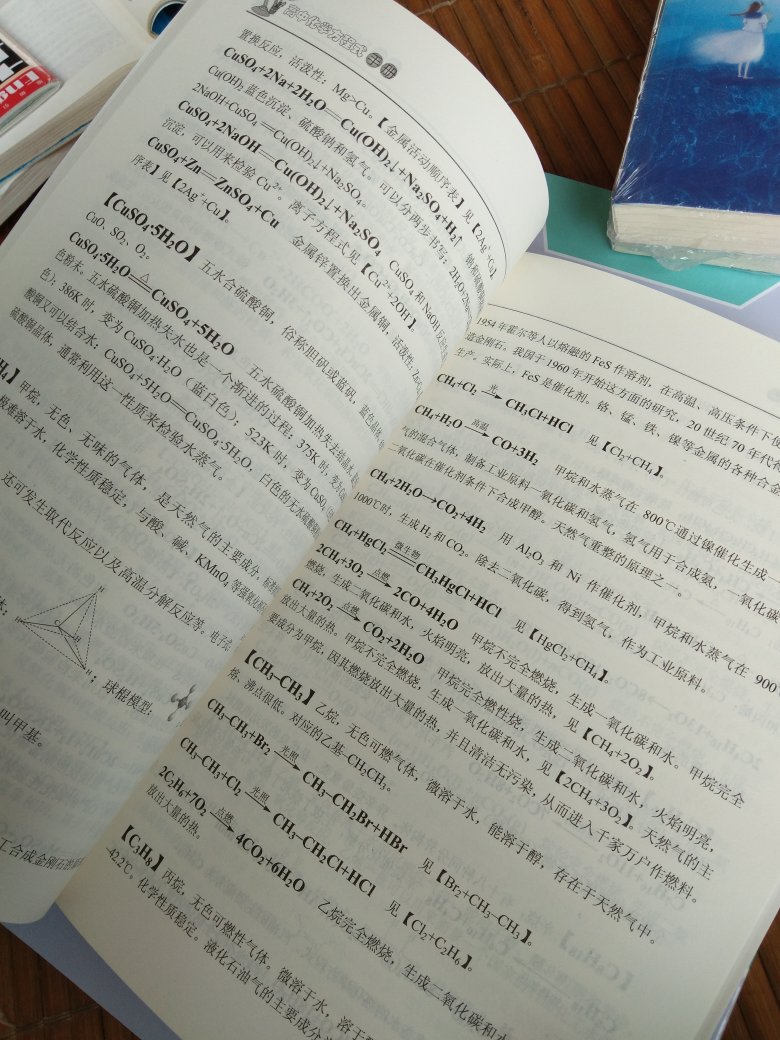 高中化学方程式手册
置换反应，活泼性：Mg>Cu。【金属活动顺序表】见【2Ag⁺+Cu】
CuSO₄+2Na+2H₂O══Cu(OH)₂↓+Na₂SO₄+H₂↑
Cu(OH)₂蓝色沉淀、硫酸钠和氢气。可以分两步书写：2H₂O+2Na
2NaOH+CuSO₄══Cu(OH)₂↓+Na₂SO₄。
CuSO₄+2NaOH══Cu(OH)₂↓+Na₂SO₄ CuSO₄和NaOH
沉淀，可以用来检验Cu²⁺。离子方程式见【Cu²⁺+2OH⁻】。
CuSO₄+Zn══ZnSO₄+Cu 金属锌置换出金属铜，活泼性：
序表】见【2Ag⁺+Cu】。
【CuSO₄·5H₂O】五水合硫酸铜，俗称胆矾或蓝矾，蓝色晶体
CuO、SO₂、O₂。
CuSO₄·5H₂O ══△ CuSO₄+5H₂O 五水硫酸铜加热失去结晶水
色粉末。五水硫酸铜加热失水也是一个渐进的过程：375K时，
色）；386K时，变为CuSO₄·H₂O（蓝白色）；523K时，变为CuSO₄
酸铜又可以结合水：CuSO₄+5H₂O══CuSO₄·5H₂O，白色的无水硫酸铜
硫酸铜晶体，通常利用这一性质来检验水蒸气。
H₄】甲烷，无色、无味的气体，是天然气的主要成分，
极难溶于水，化学性质稳定，与酸、碱、KMnO₄等强氧化
还可发生取代反应以及高温分解反应等。电子式
体：
H
H
H
；球棍模型：
叫甲基。
工合成金刚石
1954年霍尔等人以熔融的FeS作溶剂，在高温、高压条件下
造金刚石。我国于1960年开始这方面的研究，20世纪70年代
生产。实际上，FeS是催化剂。铬、锰、铁、镍等金属的各种合金
CH₄+Cl₂ 光→ CH₃Cl+HCl 见【Cl₂+CH₄】。
CH₄+H₂O 高温→ CO+3H₂ 甲烷和水蒸气在800℃通过镍催化生成一
气的混合气体，制备工业原料一氧化碳和氢气，氢气用于合成氨，一氧化碳
一氧化碳在催化剂条件下合成甲醇。天然气重整的原理之一。
CH₄+2H₂O→CO₂+4H₂ 用Al₂O₃和Ni作催化剂，甲烷和水蒸气在900
1000℃时，生成H₂和CO₂。除去二氧化碳，得到氢气，作为工业原料。
CH₄+HgCl₂ 微生物══ CH₃HgCl+HCl 见【HgCl₂+CH₄】。
2CH₄+3O₂ 点燃→ 2CO+4H₂O 甲烷不完全燃烧，生成一氧化碳和水。甲烷完全
燃烧，生成二氧化碳和水，火焰明亮，放出大量的热，见【CH₄+2O₂】。
CH₄+2O₂ 点燃→ CO₂+2H₂O 甲烷完全燃性烧，生成二氧化碳和水，火焰明亮，
放出大量的热。甲烷不完全燃烧，生成一氧化碳和水，见【2CH₄+3O₂】。天然气的主
要成分为甲烷，因其燃烧放出大量的热，并且清洁无污染，从而进入千家万户作燃料。
【CH₃–CH₃】乙烷，无色可燃气体，微溶于水，能溶于醇，存在于天然气中。
熔、沸点很低。对应的乙基–CH₂CH₃。
CH₃–CH₃+Br₂ 光照→ CH₃–CH₂Br+HBr 见【Br₂+CH₃–CH₃】。
CH₃–CH₃+Cl₂ 光照→ CH₃–CH₂Cl+HCl 见【Cl₂+C₂H₆】。
2C₂H₆+7O₂ 点燃→ 4CO₂+6H₂O 乙烷完全燃烧，生成二氧化碳和水
放出大量的热。
【C₃H₈】丙烷，无色可燃性气体。微溶于水，溶于
-42.2℃。化学性质稳定。液化石油气的主要成分